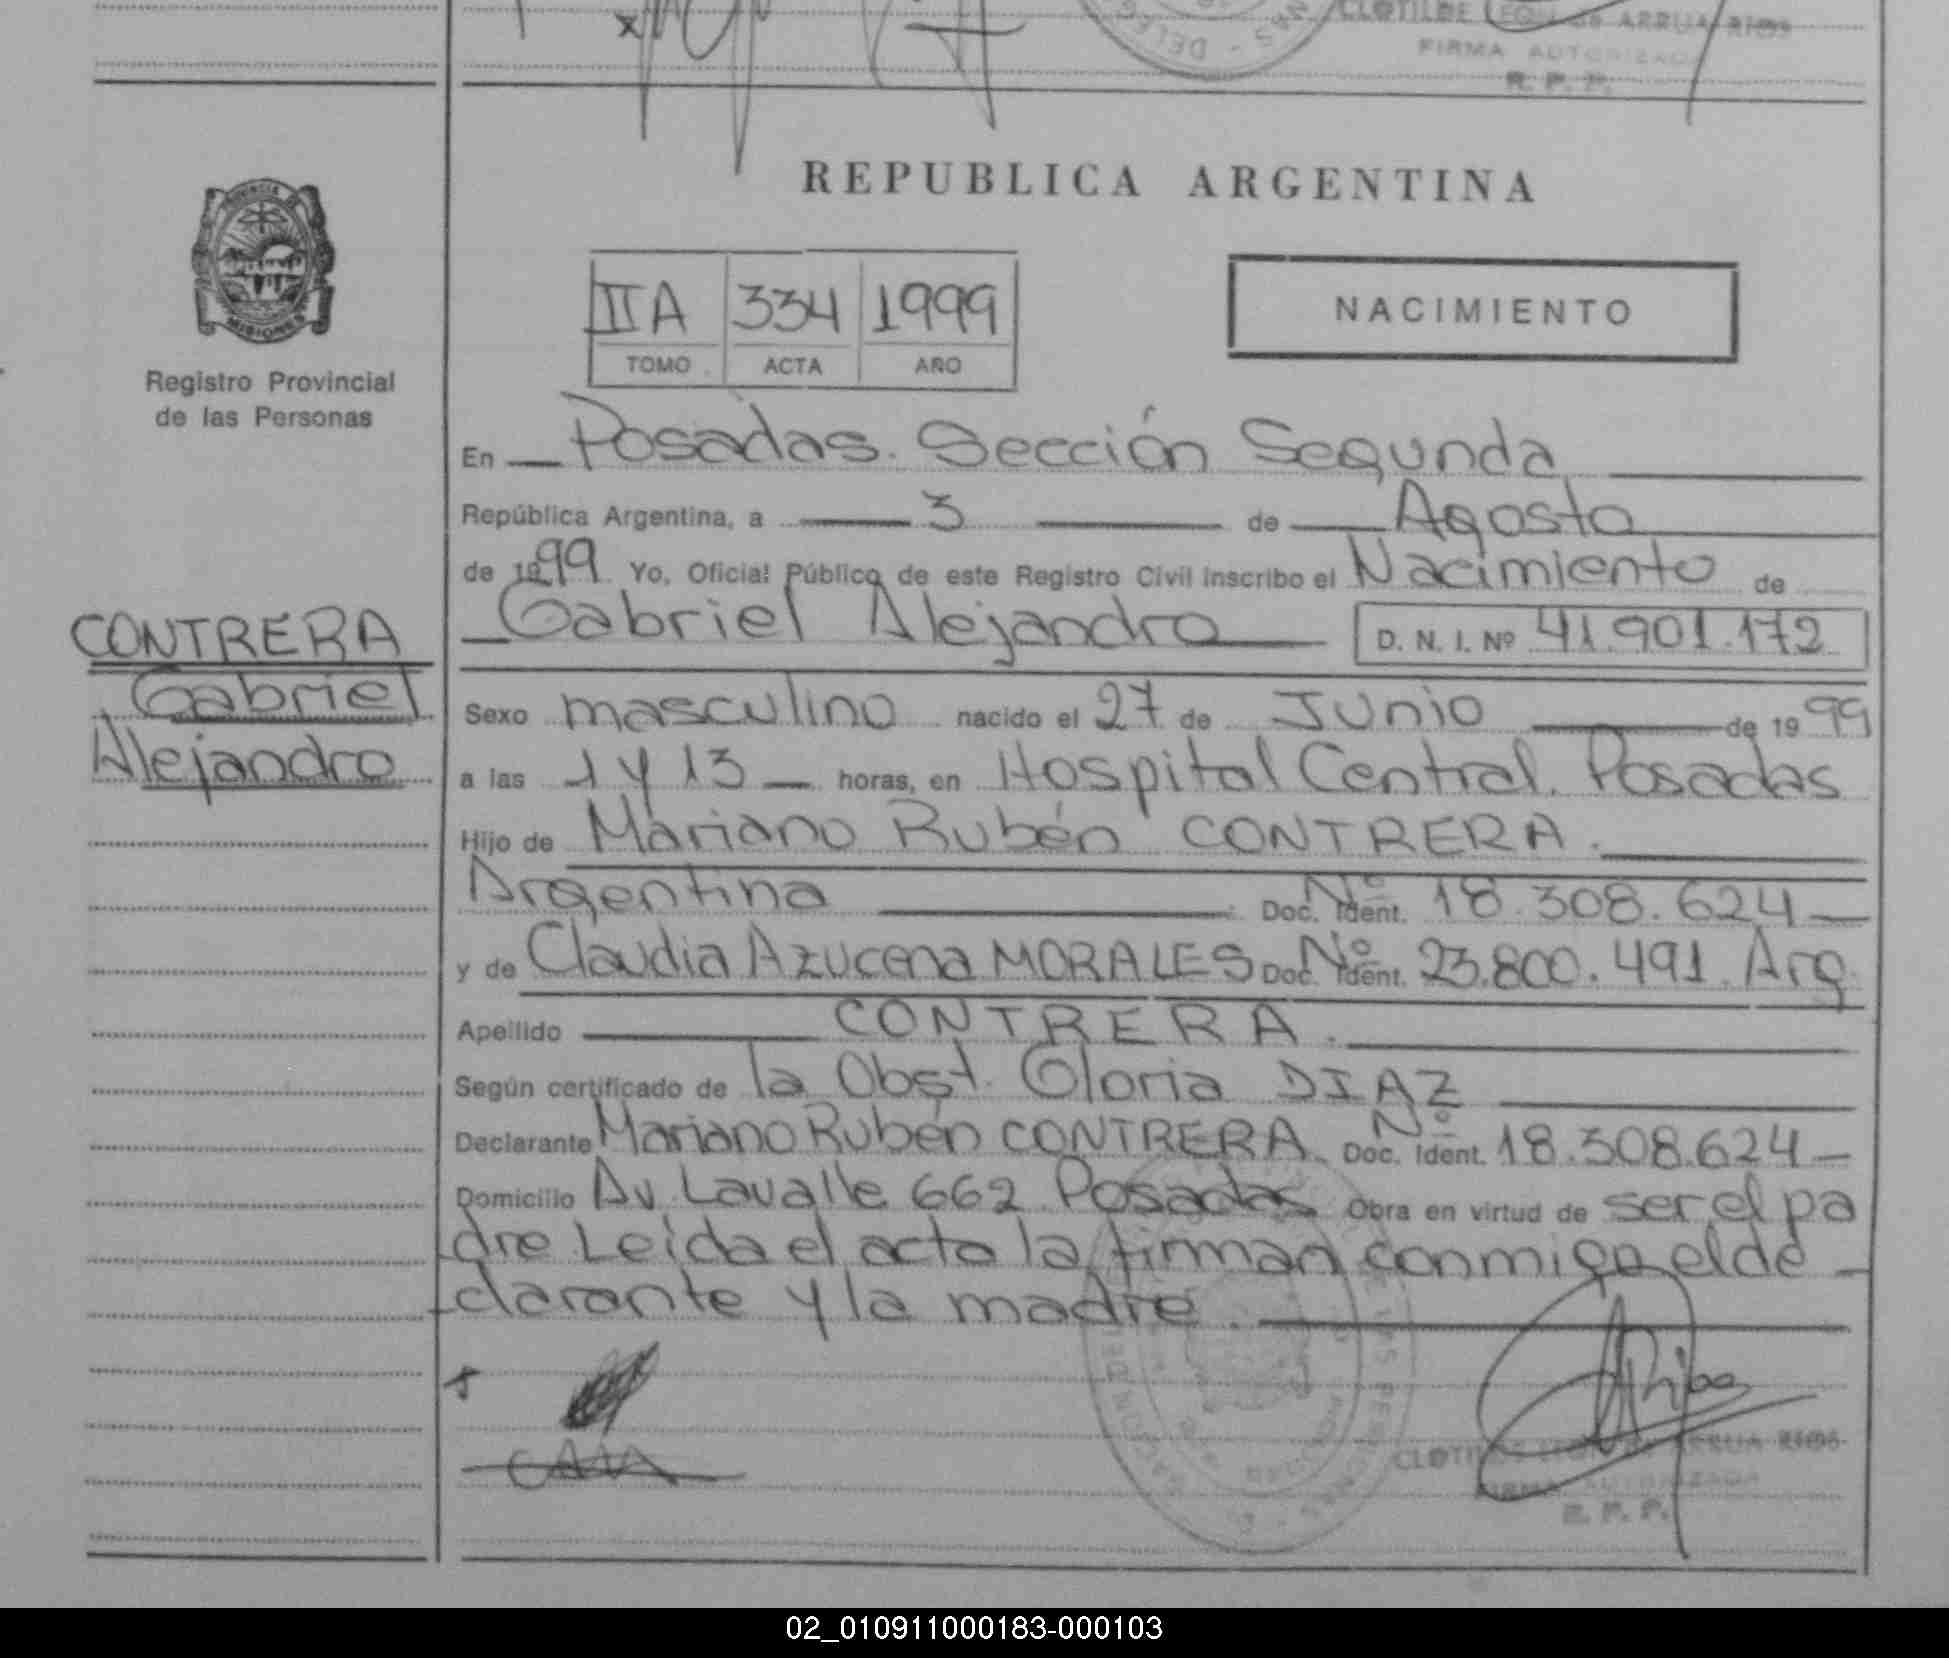 CLOTILDE LEQUI de ARRUA RIOS
FIRMA AUTORIZADA
R. P. P.
REPUBLICA ARGENTINA
MISIONES
Registro Provincial
de las Personas
IIA 334 1999
TOMO ACTA AÑO
NACIMIENTO
En Posadas. Sección Segunda
República Argentina, a 3 de Agosto
de 1999 Yo, Oficial Público de este Registro Civil inscribo el Nacimiento de
Gabriel Alejandro D. N. I. Nº 41.901.172
CONTRERA
Gabriel
Alejandro
Sexo masculino nacido el 27 de Junio de 1999
a las 1 y 13 horas, en Hospital Central. Posadas
Hijo de Mariano Rubén CONTRERA.
Argentina Doc. Ident. Nº 18.308.624
y de Claudia Azucena MORALES Doc. Ident. Nº 23.800.491. Arg
Apellido CONTRERA.
Según certificado de la Obst. Gloria DIAZ
Declarante Mariano Rubén CONTRERA. Doc. Ident. Nº 18.308.624
Domicilio Av. Lavalle 662 Posadas Obra en virtud de ser el pa
dre. Leída el acta la firman conmigo el de
clarante y la madre.
CLOTILDE ARRUA RIOS
FIRMA AUTORIZADA
R. P. P.
02_010911000183-000103